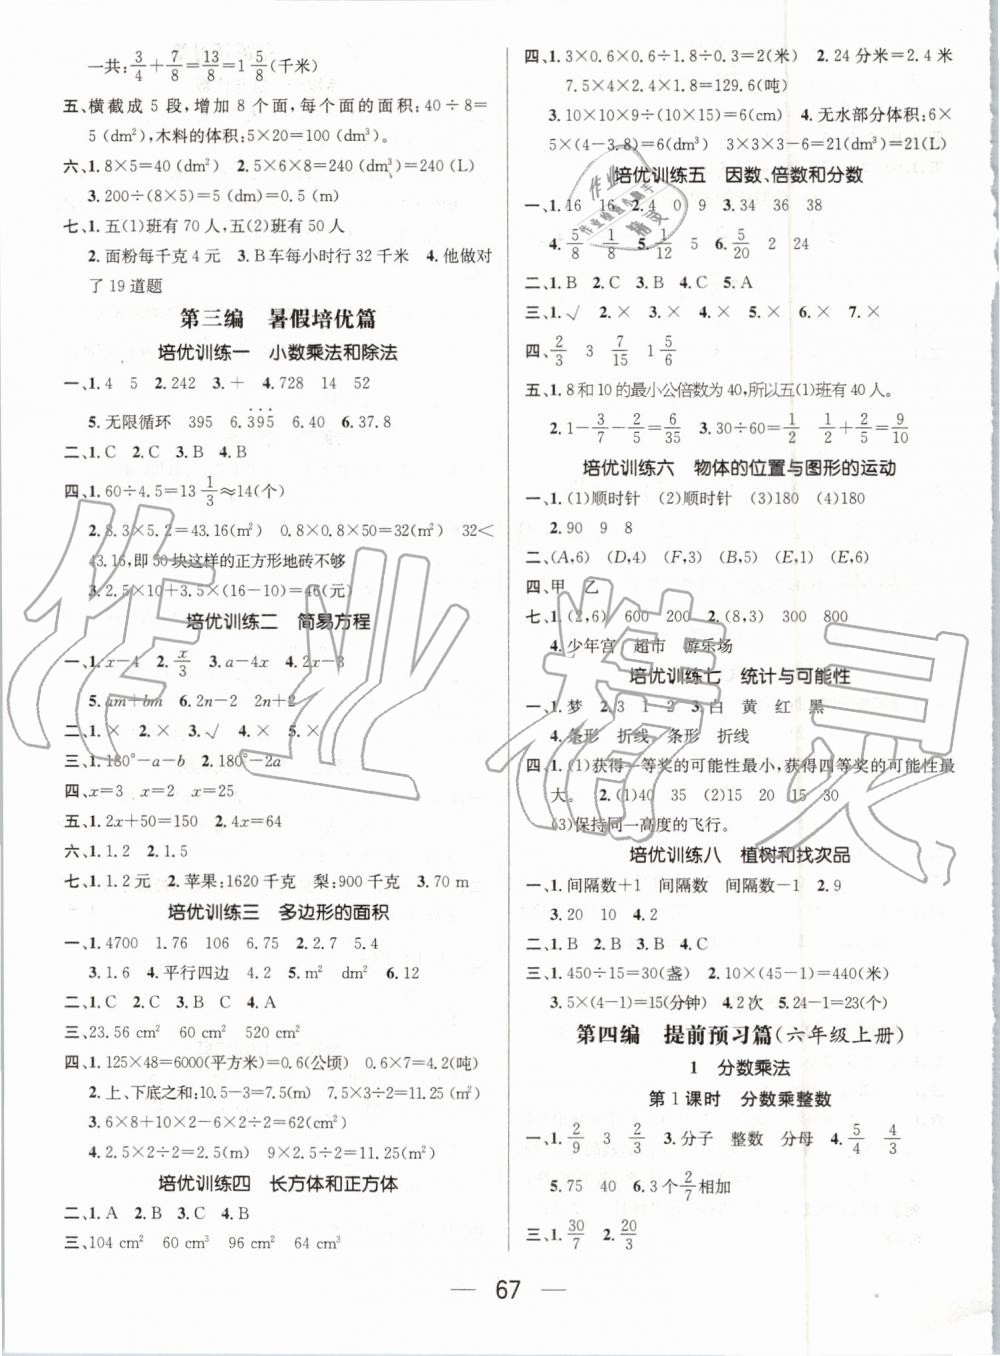 一共:3/4+7/8=13/8=1 5/8(千米)
五、横截成 5 段,增加 8 个面,每个面的面积:40÷8=
5(dm²),木料的体积:5×20=100(dm³)。
六、1. 8×5=40(dm²)　2. 5×6×8=240(dm³)=240(L)
3. 200÷(8×5)=5(dm)=0.5(m)
七、1. 五(1)班有 70 人,五(2)班有 50 人
2. 面粉每千克 4 元　3. B 车每小时行 32 千米　4. 他做对
了 19 道题
第三编　暑假培优篇
培优训练一　小数乘法和除法
一、1. 4　5　2. 242　3. ÷　4. 728　14　52
5. 无限循环　395　6. 3̇9̇5̇　6. 40　6. 37.8
二、1. C　2. C　3. B　4. B
四、1. 60÷4.5=13 1/3≈14(个)
2. 8.3×5.2=43.16(m²)　0.8×0.8×50=32(m²)　32<
43.16,即 50 块这样的正方形地砖不够
3. 2.5×10+3.5×(16-10)=46(元)
培优训练二　简易方程
一、1. x-4　2. x/3　3. a-4x　4. 2x-3
5. am+bm　6. 2n-2　2n+2
二、1. ×　2. ×　3. √　4. ×　5. ×
三、1. 180°-a-b　2. 180°-2a
四、x=3　x=2　x=25
五、1. 2x+50=150　2. 4x=64
六、1. 1.2　2. 1.5
七、1. 1.2 元　2. 苹果:1620 千克　梨:900 千克　3. 70 m
培优训练三　多边形的面积
一、1. 4700　1.76　106　6.75　2. 2.7　5.4
3. 1.6　4. 平行四边　4.2　5. m²　dm²　6. 12
二、1. C　2. A　3. B　4. C　5. A
三、23.56 cm²　60 cm²　520 cm²
四、1. 125×48=6000(平方米)=0.6(公顷)　0.6×7=4.2(吨)
2. 上、下底之和:10.5-3=7.5(m)　7.5×3÷2=11.25(m²)
3. 6×8+10×2-6×2÷2=62(cm²)
4. 2.5×2÷2=2.5(m)　9×2.5÷2=11.25(m²)
培优训练四　长方体和正方体
二、1. A　2. B　3. C　4. B
三、104 cm²　60 cm³　96 cm²　64 cm³
四、1. 3×0.6×0.6÷1.8÷0.3=2(米)　2. 24 分米=2.4 米
7.5×4×2.4×1.8=129.6(吨)
3. 10×10×9÷(10×15)=6(cm)　4. 无水部分体积:6×
5×(4-3.8)=6(cm³)　3×3×3-6=21(dm³)=21(L)
培优训练五　因数、倍数和分数
一、1. 16　16　2. 4　0　9　3. 34　36　38
4. 5/8　1/8　5. 1/12　5　6. 5/20　2　24
二、1. B　2. C　3. B　4. C　5. A
三、1. √　2. ×　3. ×　4. ×　5. ×　6. ×　7. ×
四、2/3　3　7/15　1 5/6
五、1. 8 和 10 的最小公倍数为 40,所以五(1)班有 40 人。
2. 1-3/7-2/5=6/35　3. 30÷60=1/2　1/2+2/5=9/10
培优训练六　物体的位置与图形的运动
一、1. (1)顺时针　(2)顺时针　(3)180　(4)180
2. 90　9　8
二、(A,6)　(D,4)　(F,3)　(B,3)　(A,1)　(E,6)
四、甲　乙
七、1. (2,6)　600　200　2. (8,3)　300　800
4. 少年宫　超市　游乐场
培优训练七　统计与可能性
一、1. 梦　2. 3　1　2　3. 白　黄　红　黑
4. 条形　折线　条形　折线
四、1. (1)获得一等奖的可能性最小,获得四等奖的可能性最
大。　2. (1)40　35　(2)15　20　15　30
(3)保持同一高度的飞行。
培优训练八　植树和找次品
一、1. 间隔数+1　间隔数　间隔数-1　2. 9
3. 20　10　4. 2
二、1. B　2. B　3. B　4. C
三、1. 450÷15=30(盏)　2. 10×(45-1)=440(米)
3. 5×(4-1)=15(分钟)　4. 2 次　5. 24-1=23(个)
第四编　提前预习篇(六年级上册)
1　分数乘法
第 1 课时　分数乘整数
一、1. 2/9　3　2/3　3. 分子　整数　分母　4. 5/4　4/3
5. 75　40　6. 3 个 2/7 相加
三、1. 30/7　2. 20/3
67
作业精灵